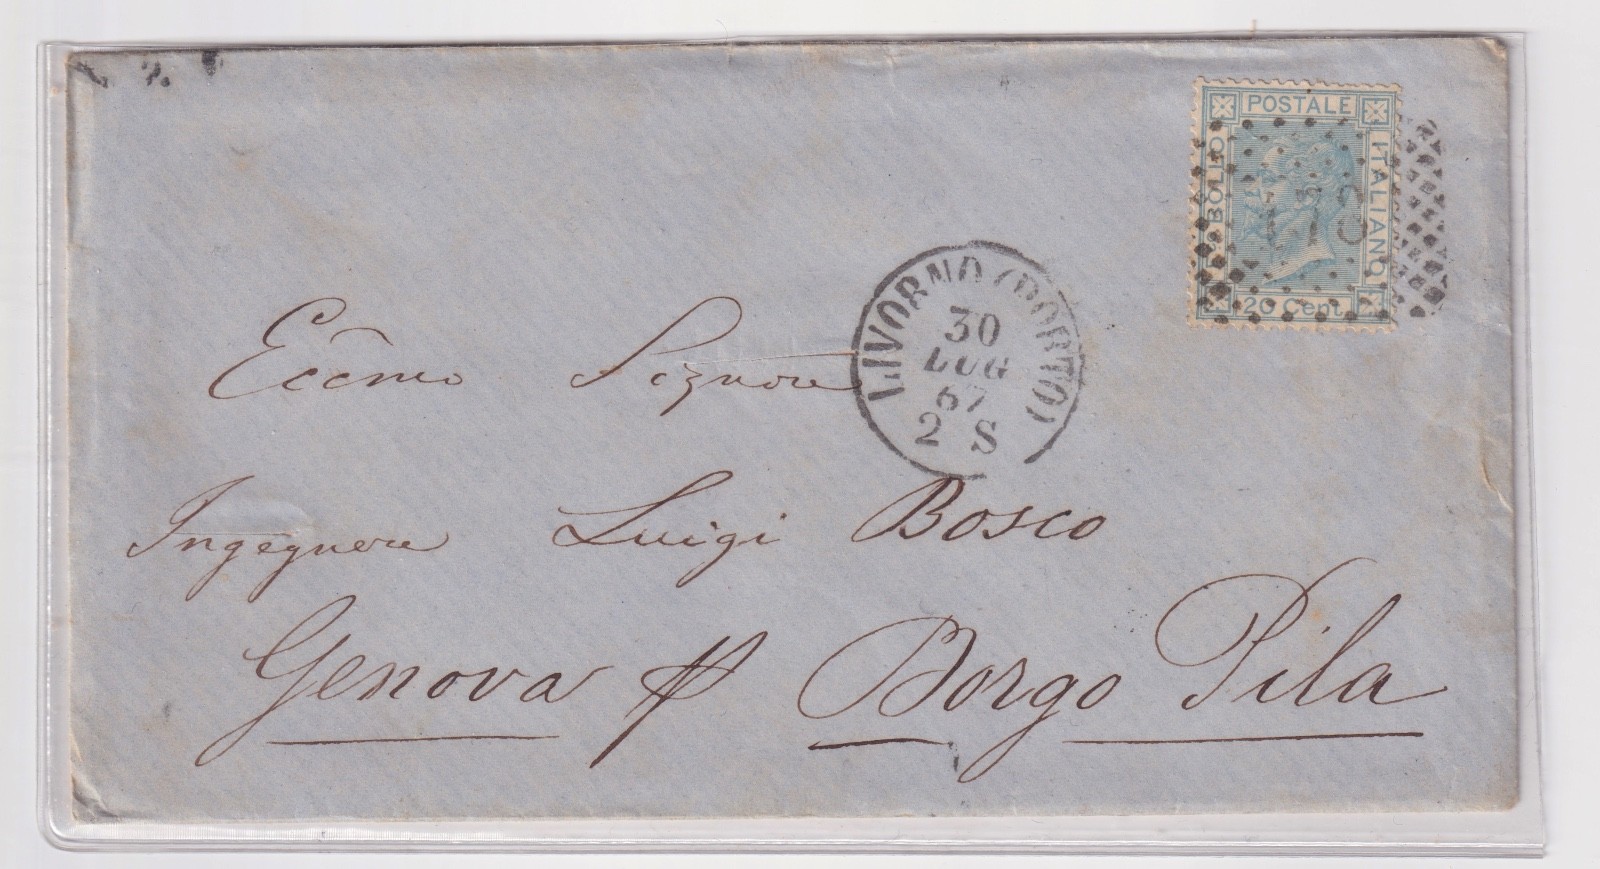 POSTALE
BOLLO
ITALIANO
20 Cent.
LIVORNO (PORTO)
30
LUG
67
2 S
Eccmo Signore
Ingegnere Luigi Bosco
Genova Borgo Pila